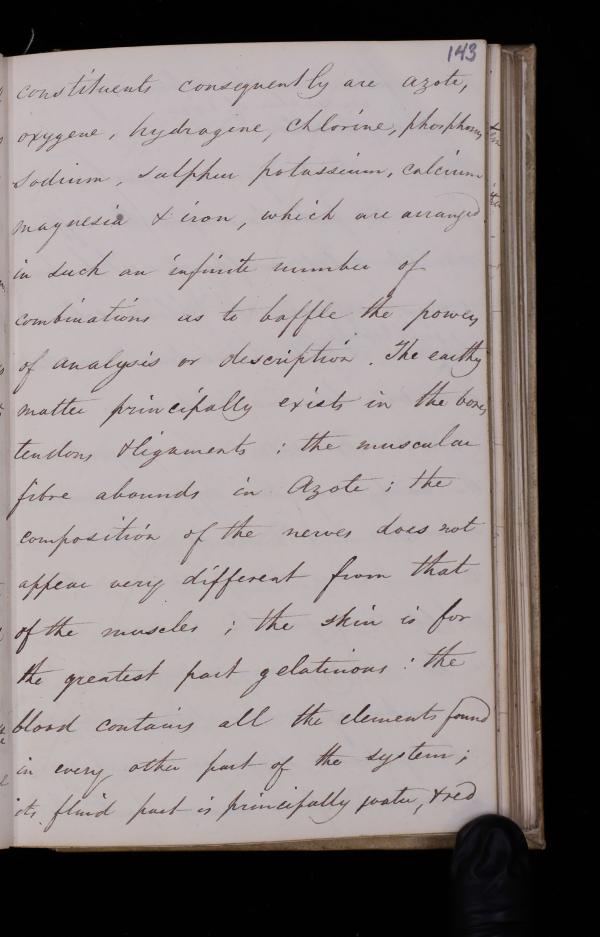 143
constituents consequently are azote,
oxygene, hydrogine, chlorine, phosphorus
sodium, sulphur potassium, calcium
magnesia & iron, which are arranged
in such an infinite number of
combinations as to baffle the powers
of analysis or description. The earthy
matter principally exists in the bones
tendons & ligaments : the muscular
fibre abounds in Azote ; the
composition of the nerves does not
appear very different from that
of the muscles ; the skin is for
the greatest part gelatinous : the
blood contains all the elements found
in every other part of the system ;
its fluid part is principally water, & red